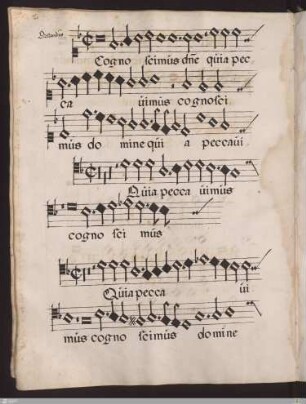 Cogno scimus dñe quia pec
ca uimus cognosci
mus do mine qui a peccaui
Quia pecca uimus
cogno sci mus
Quia pecca ui
mus cogno scimus domine